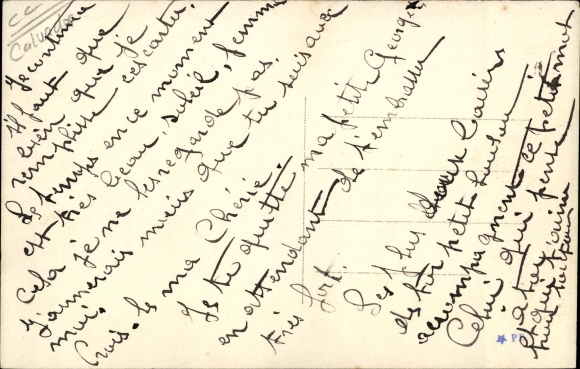 CC
Calvados
Je continue
il faut que
bien que je
remplisse ces cartes.
Le temps en ce moment
est très beau, soleil, femme
Cela je ne les regarde pas.
J'aimerais mieux que tu sois avec
moi.
Crois-le ma Chérie.
Je te quitte ma petite Georgette
en attendant de t'embrasser
très fort.
Les plus doux baisers
de ton petit
accompagnent ce petit mot
Celui qui pense
à toi
et qui t'aime